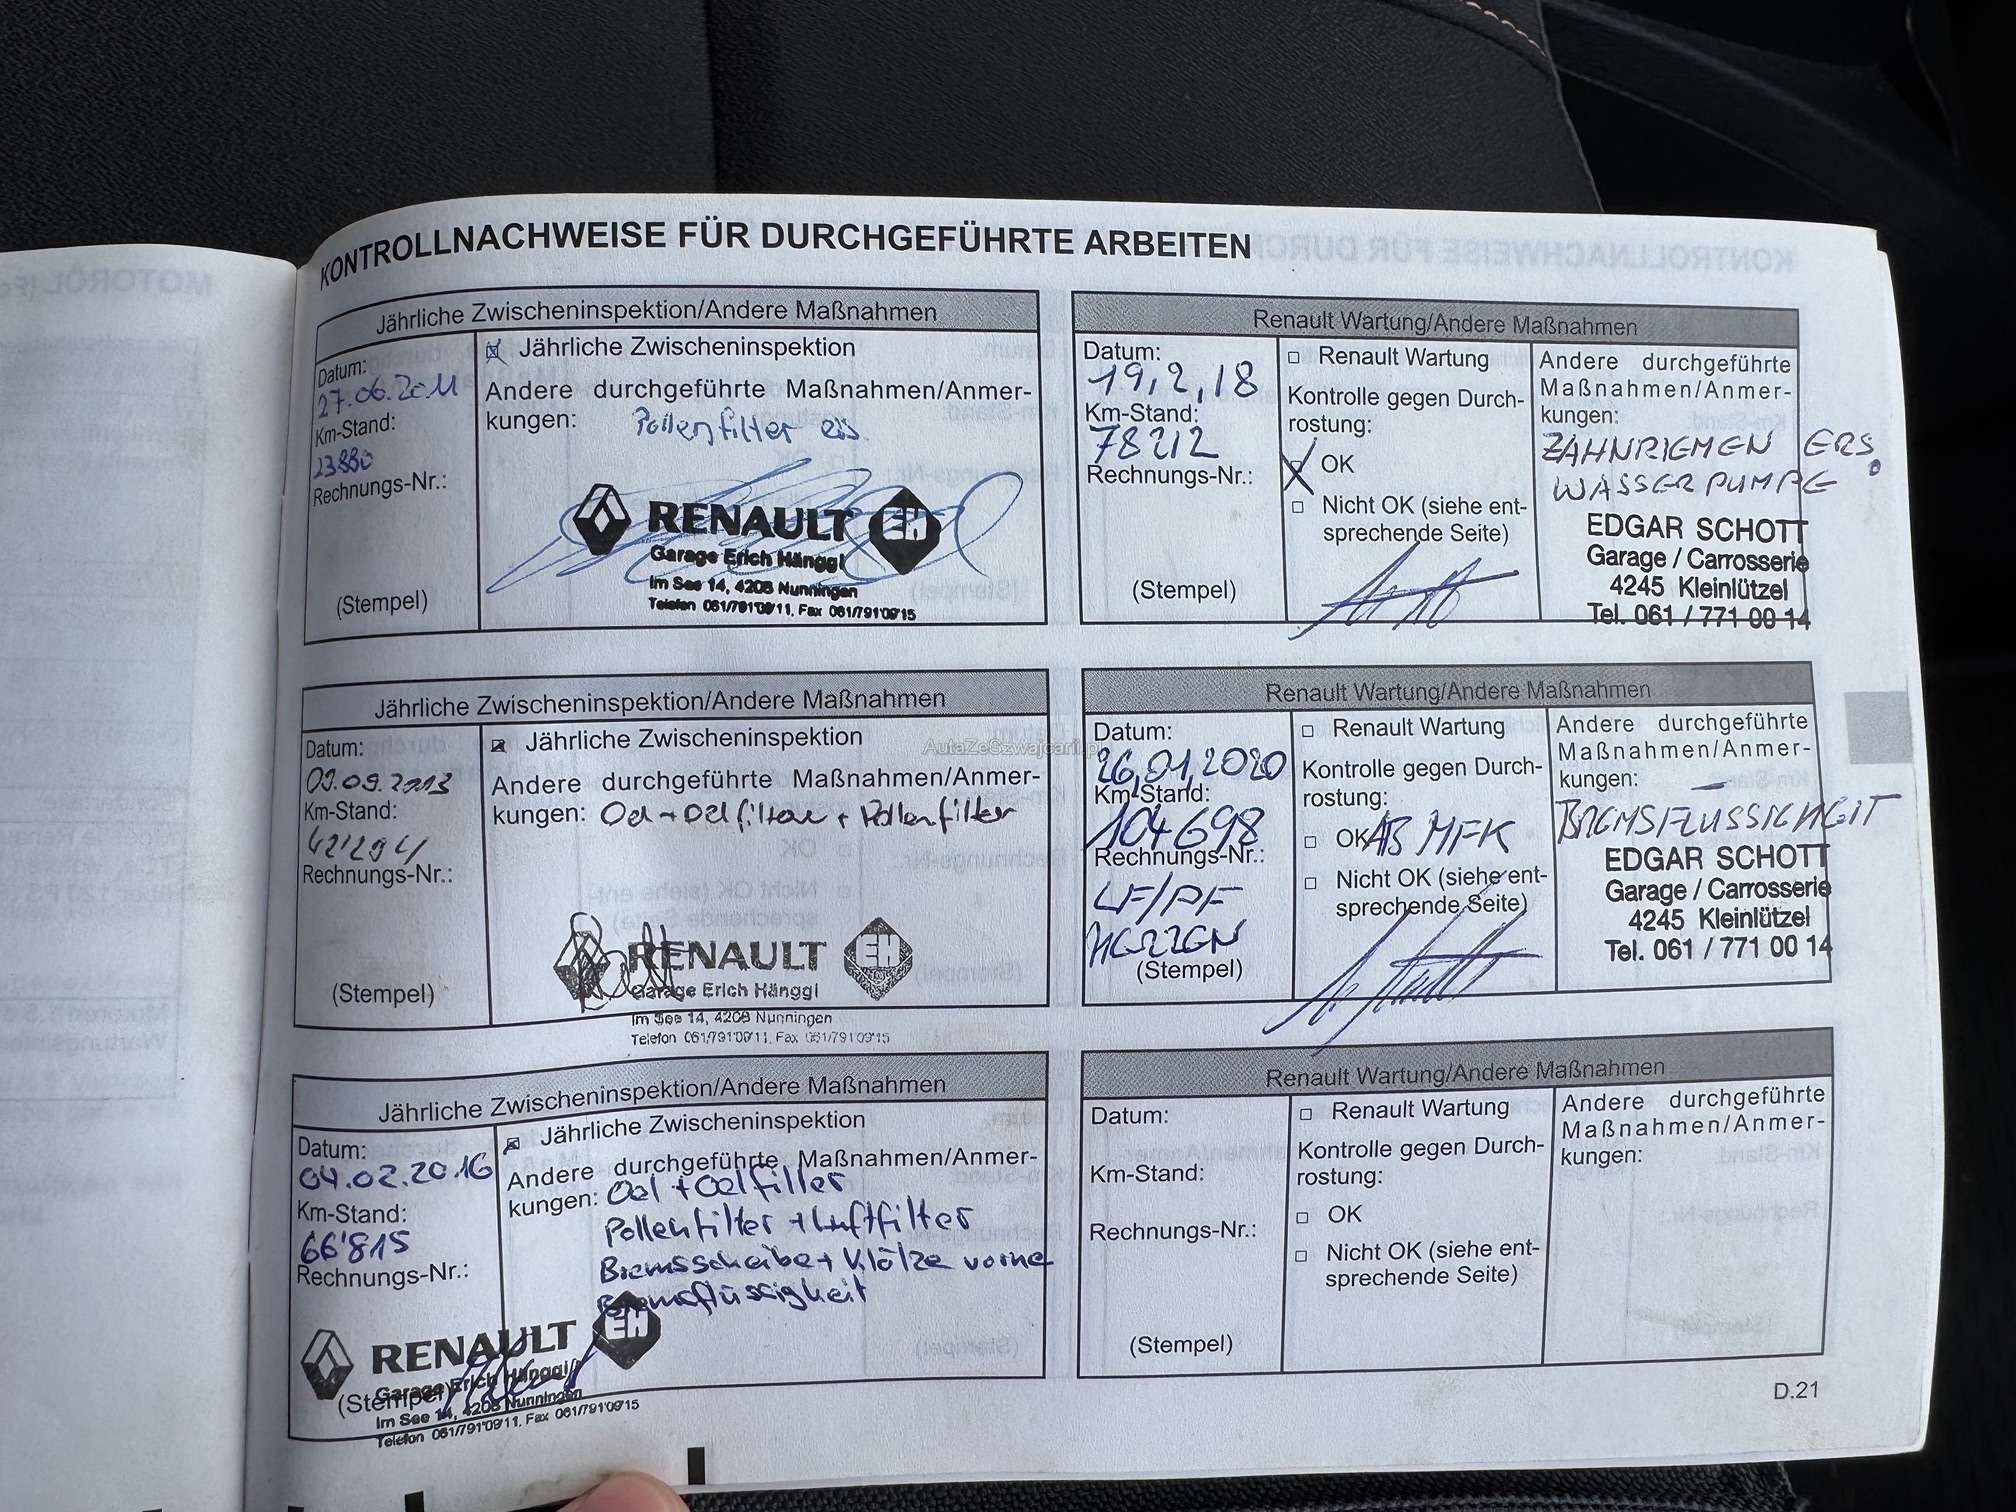 KONTROLLNACHWEISE FÜR DURCHGEFÜHRTE ARBEITEN
Jährliche Zwischeninspektion/Andere Maßnahmen
Datum:
27.06.2011
Km-Stand:
23880
Rechnungs-Nr.:
(Stempel)
Jährliche Zwischeninspektion
Andere durchgeführte Maßnahmen/Anmer-
kungen: Pollenfilter
RENAULT EH
Garage Erich Hänggi
Im See 14, 4208 Nunningen
Telefon 061/791'09'11, Fax 061/791'09'15
Jährliche Zwischeninspektion/Andere Maßnahmen
Datum:
09.09.2013
Km-Stand:
42'294
Rechnungs-Nr.:
(Stempel)
Jährliche Zwischeninspektion
Andere durchgeführte Maßnahmen/Anmer-
kungen: Oel + Oelfilter + Pollenfilter
RENAULT EH
Garage Erich Hänggi
Im See 14, 4208 Nunningen
Telefon 061/791'09'11, Fax 061/791'09'15
Jährliche Zwischeninspektion/Andere Maßnahmen
Datum:
04.02.2016
Km-Stand:
66'815
Rechnungs-Nr.:
(Stempel)
Jährliche Zwischeninspektion
Andere durchgeführte Maßnahmen/Anmer-
kungen: Oel + Oelfilter
Pollenfilter + Luftfilter
Bremsscheibe + Klötze vorne
Bremsflüssigkeit
RENAULT EH
Garage Erich Hänggi
Im See 14, 4208 Nunningen
Telefon 061/791'09'11, Fax 061/791'09'15
Renault Wartung/Andere Maßnahmen
Datum:
19,2,18
Km-Stand:
78212
Rechnungs-Nr.:
(Stempel)
Renault Wartung
Kontrolle gegen Durch-
rostung:
OK
Nicht OK (siehe ent-
sprechende Seite)
Andere durchgeführte
Maßnahmen/Anmer-
kungen:
ZAHNRIEMEN ERS.
WASSERPUMPE
EDGAR SCHOTT
Garage / Carrosserie
4245 Kleinlützel
Tel. 061 / 771 00 14
Renault Wartung/Andere Maßnahmen
Datum:
26,01,2020
Km-Stand:
104698
Rechnungs-Nr.:
LF/PF
(Stempel)
Renault Wartung
Kontrolle gegen Durch-
rostung:
OK AB MFK
Nicht OK (siehe ent-
sprechende Seite)
Andere durchgeführte
Maßnahmen/Anmer-
kungen:
BREMSFLÜSSIGKEIT
EDGAR SCHOTT
Garage / Carrosserie
4245 Kleinlützel
Tel. 061 / 771 00 14
Renault Wartung/Andere Maßnahmen
Datum:
Km-Stand:
Rechnungs-Nr.:
(Stempel)
Renault Wartung
Kontrolle gegen Durch-
rostung:
OK
Nicht OK (siehe ent-
sprechende Seite)
Andere durchgeführte
Maßnahmen/Anmer-
kungen:
D.21